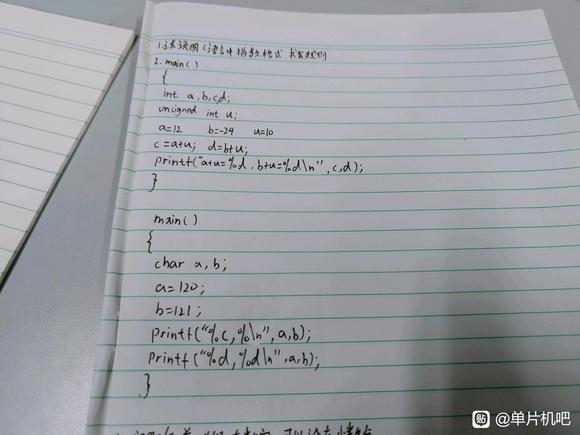 1.试说明C语言中指数格式 书写规则
2. main()
{
int a,b,c,d;
unsigned int u;
a=12 b=-24 u=10
c=a+u; d=b+u;
printf("a+u=%d,b+u=%d\n",c,d);
}
main()
{
char a,b;
a=120;
b=121;
printf("%c,%\n",a,b);
printf("%d,%d\n",a,b);
}
贴 @单片机吧